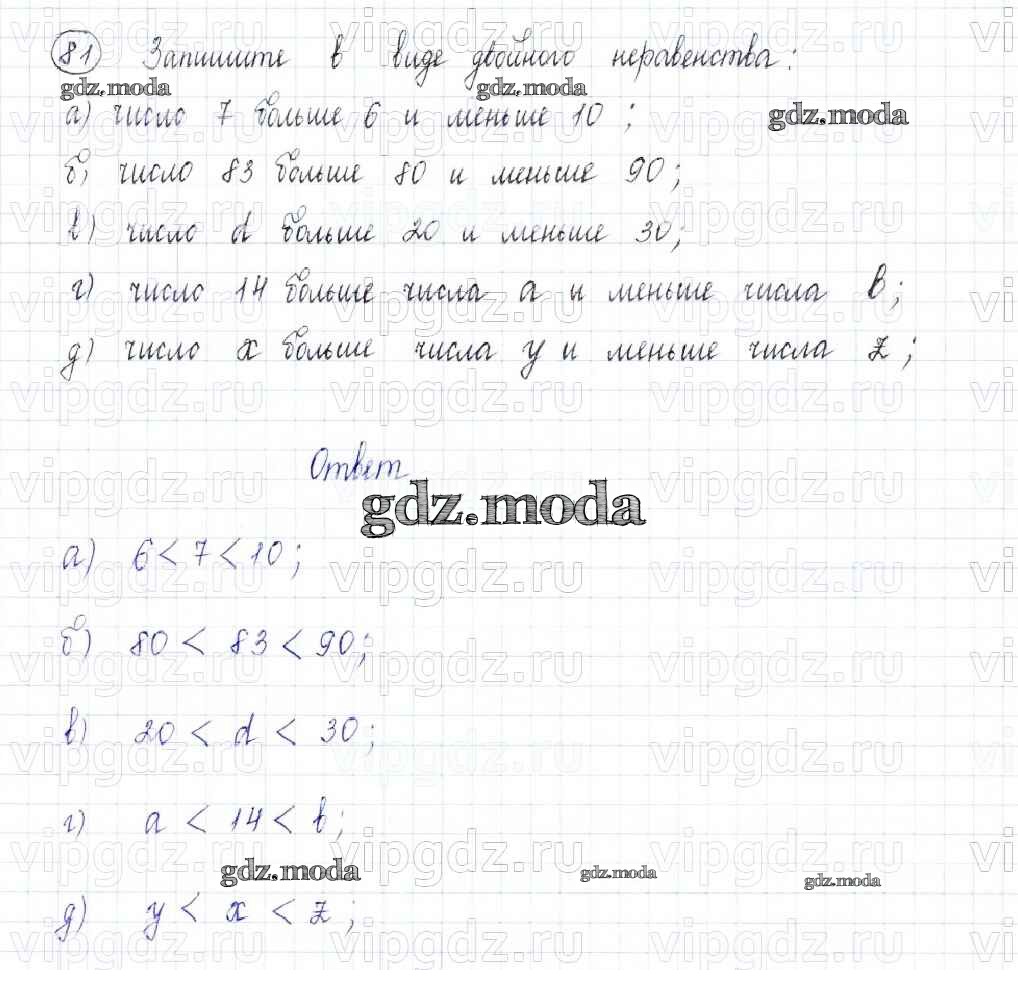 81 Запишите в виде двойного неравенства:
gdz.moda gdz.moda
а) число 7 больше 6 и меньше 10;
gdz.moda
б) число 83 больше 80 и меньше 90;
в) число d больше 20 и меньше 30;
г) число 14 больше числа a и меньше числа b;
д) число x больше числа y и меньше числа z;
Ответ
gdz.moda
а) 6 < 7 < 10;
б) 80 < 83 < 90;
в) 20 < d < 30;
г) a < 14 < b;
gdz.moda gdz.moda gdz.moda
д) y < x < z;
vipgdz.ru